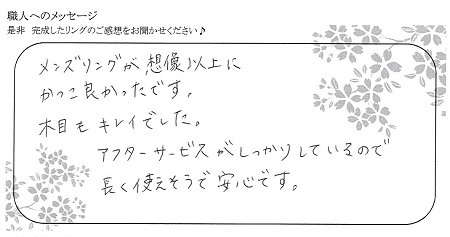 職人へのメッセージ
是非 完成したリングのご感想をお聞かせください♪
メンズリングが、想像以上に
かっこ良かったです。
木目も キレイでした。
アフターサービスがしっかりしているので
長く使えそうで安心です。